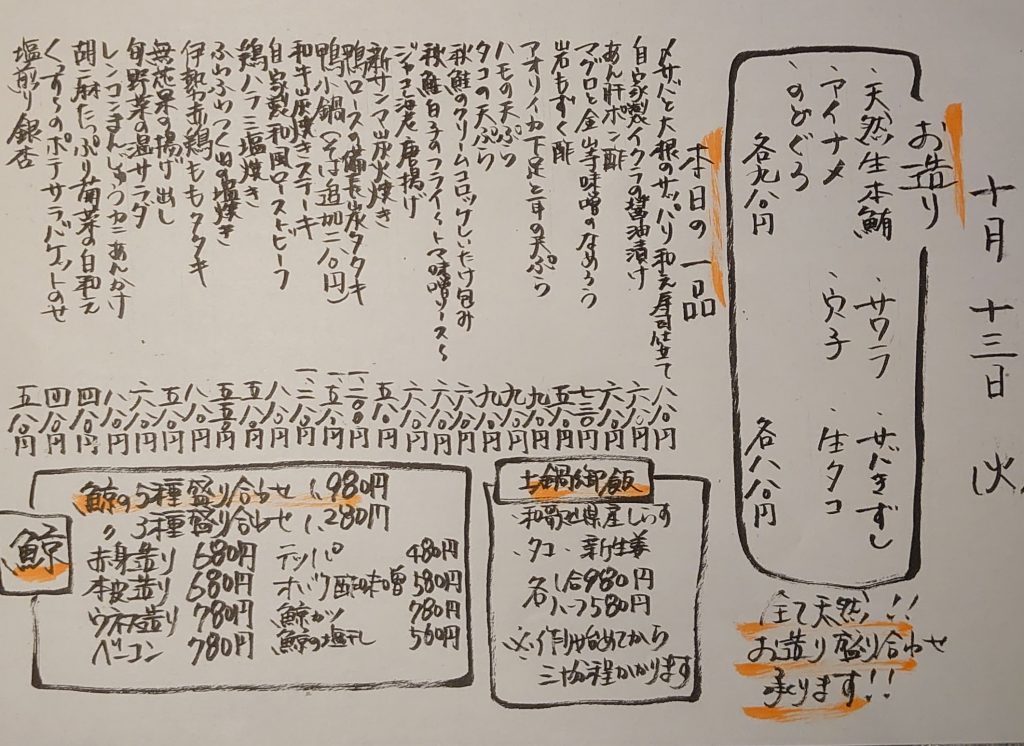 十月十三日 火
お造り
・天然生本鮪 ・サワラ ・サバきずし
・アイナメ ・穴子 ・生タコ
・のどぐろ
各九八〇円 各八八〇円
全て天然!!
お造り盛り合わせ
承ります!!
本日の一品
〆サバと大根のサッパリ和え寿司仕立て 八八〇円
自家製イクラの醤油漬け
あん肝ポン酢
マグロと金山寺味噌のなめろう
岩もずく酢
アオリイカ下足と耳の天ぷら
ハモの天ぷら
タコの天ぷら
秋鮭のクリームコロッケしいたけ包み
秋鮭白子のフライ〜トマト味噌ソース〜
ジャコ海老唐揚げ
新サンマ炭火焼き
鴨ロースの備長炭タタキ
鴨小鍋(そば追加二八〇円)
和牛炭焼きステーキ
自家製和風ローストビーフ
鶏ハラミ塩焼き
ふわふわつくねの塩焼き
伊勢赤鶏ももタタキ
無花果の揚げ出し
旬野菜の温サラダ
レンコンまんじゅうカニあんかけ
胡麻たっぷり菊菜の白和え 四八〇円
くんすーのポテサラバケットのせ 四八〇円
塩煎り銀杏 五八〇円
土鍋御飯
・和歌山県産しらす
・タコ・新生姜
各 一合980円
ハーフ580円
※作り始めてから
三十分程かかります
鯨
鯨の5種盛り合わせ 1,980円
〃 3種盛り合わせ 1,280円
赤身造り 680円 テッパ 480円
本皮造り 680円 オバケ酢味噌 580円
ウネ造り 780円 鯨カツ 780円
ベーコン 780円 鯨の塩干し 560円